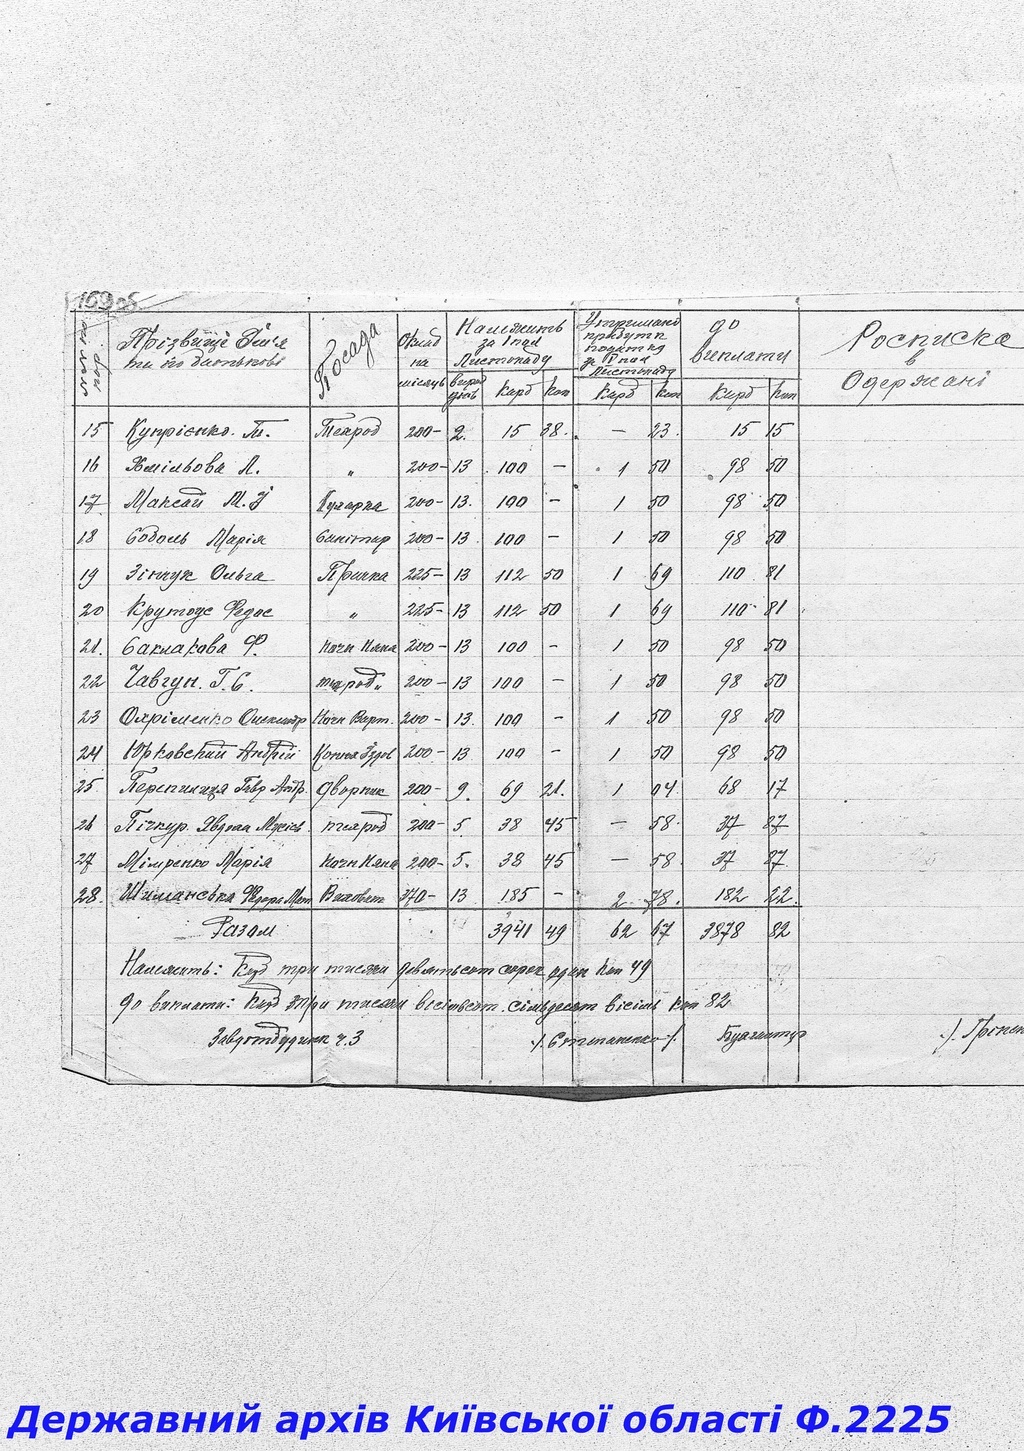 169 об.
Прізвище Ім'я та по батькові
Посада
Оклад на місяць
Належить за І пол Листопаду
Утримано прибутк податку за І пол Листопаду
до виплати
Росписка в Одержані
Карб Коп Карб Коп Карб Коп
15 Купрієнко. Техрод 200- 2. 15 38. — 23. 15 15
16 Хмільова Л. " 200- 13 100 — 1 50 98 50
17 Максай М. Кухарка 200- 13. 100 — 1 50 98 50
18 Соболь Марія Санітар 200- 13 100 — 1 50 98 50
19 Зінчук Ольга Прачка 225- 13 112 50 1 69 110 81
20 Крутоус Федос " 225- 13 112 50 1 69 110 81
21. Саклакова Ф. Ночн Няня 200- 13 100 — 1 50 98 50
22 Чавгун. Г. Є. техрод " 200- 13 100 — 1 50 98 50
23 Охріменко Олександр Ночн Варт. 200- 13. 100 — 1 50 98 50
24 Юрковський Андрій 200- 13 100 — 1 50 98 50
25. Перепилиця Гавр Андр. Дворник 200- 9. 69 21. 1 04 68 17
26 Пічкур. Явдоха техрод 200- 5. 38 45 — 58. 37 87
27 Марія Ночн Няня 200- 5. 38 45 — 58. 37 87
28. Шиманська Виховат 370- 13 185 — 2 78. 182 22.
Разом 3941 49 62 67 3878 82
Належить: Крб три тисячи девятьсот сорок один Коп 49
до виплати: Крб три тисячи вісімсот сімдесят вісімь коп 82
Завдитбудинк ч. 3 /. Степаненко ./ Бухгалтер /.
Державний архів Київської області Ф.2225